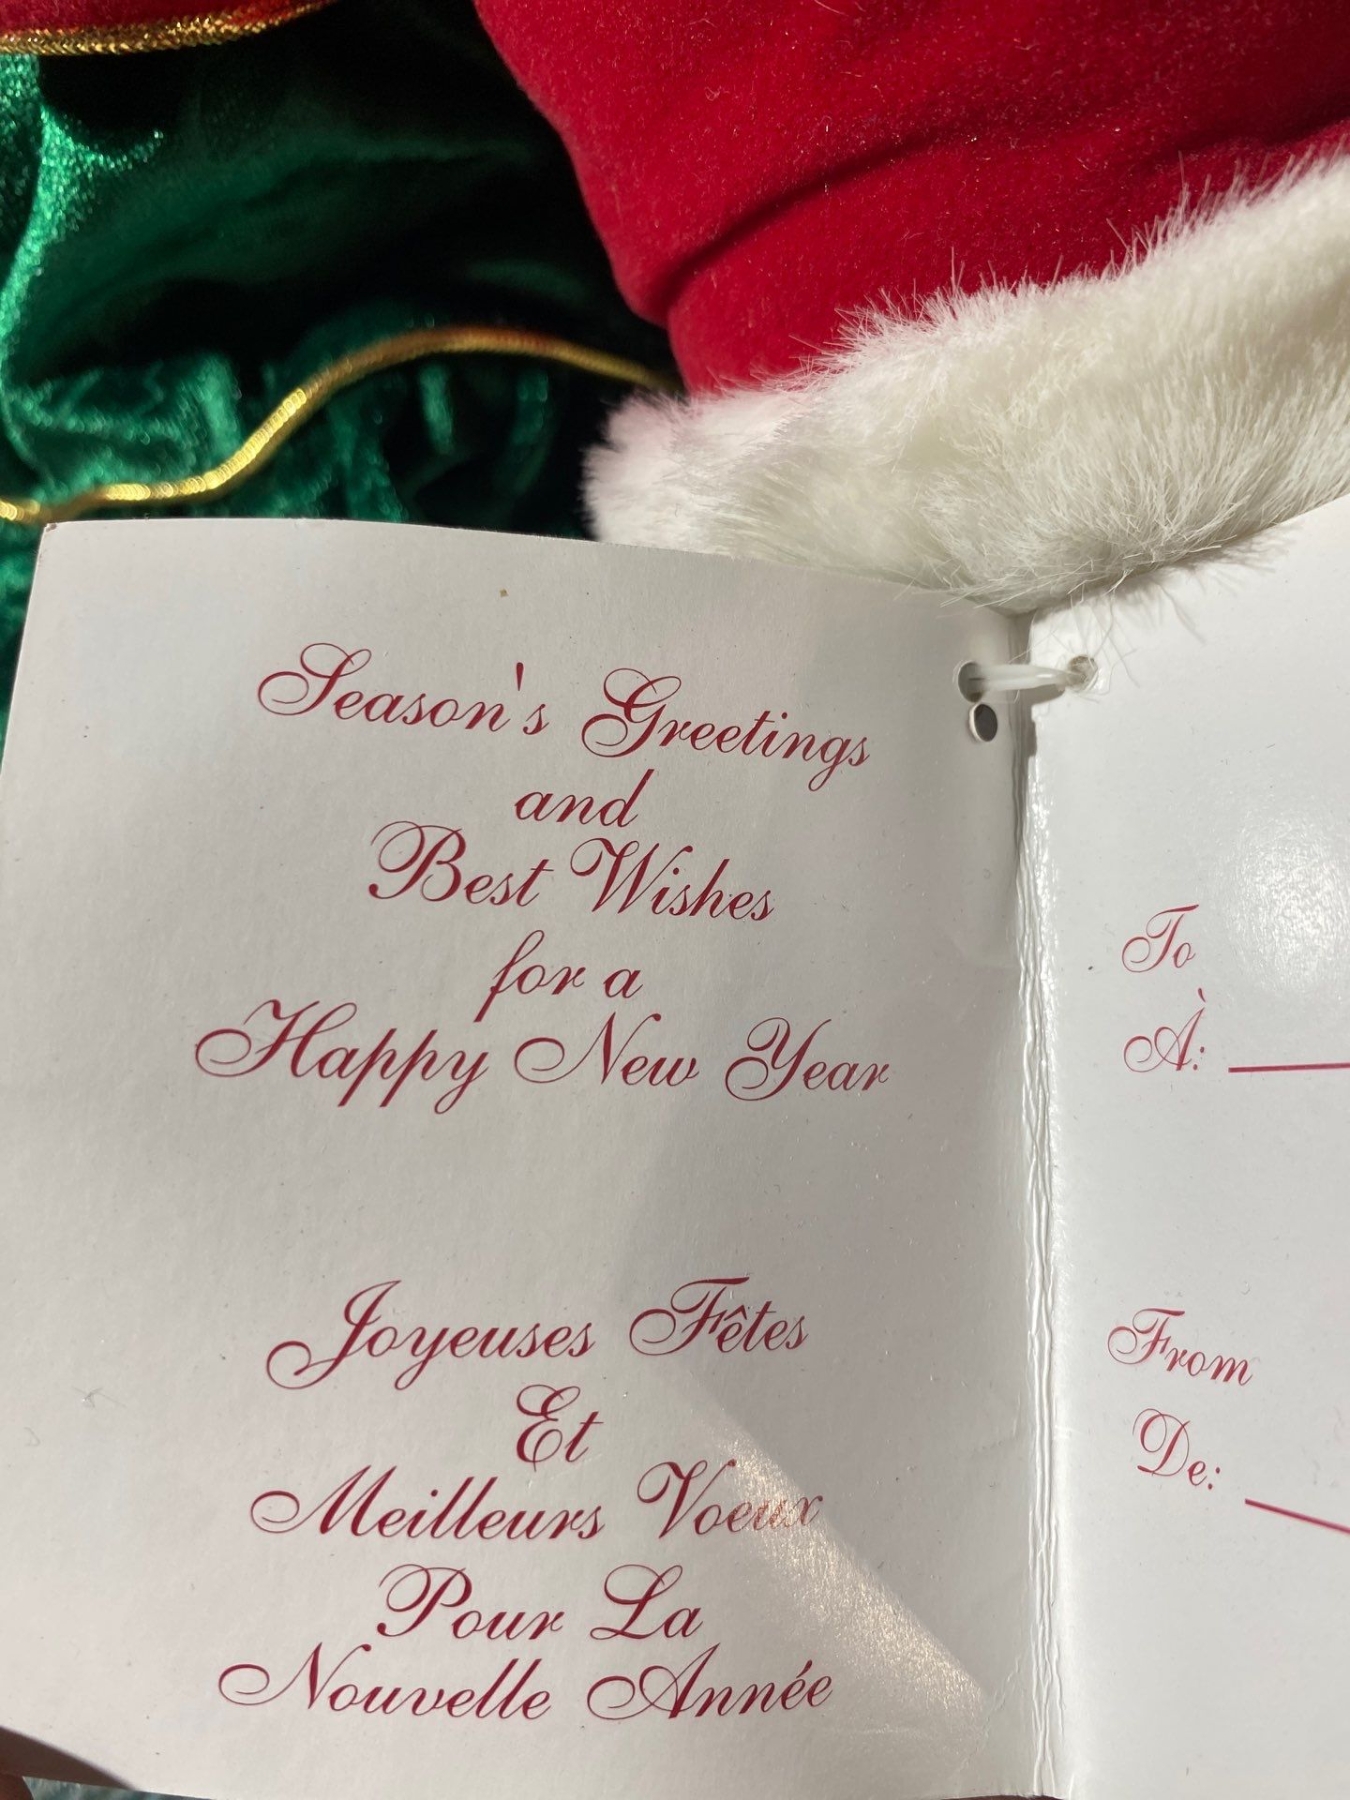 Season's Greetings
and
Best Wishes
for a
Happy New Year
Joyeuses Fêtes
Et
Meilleurs Voeux
Pour La
Nouvelle Année
To
À:
From
De: